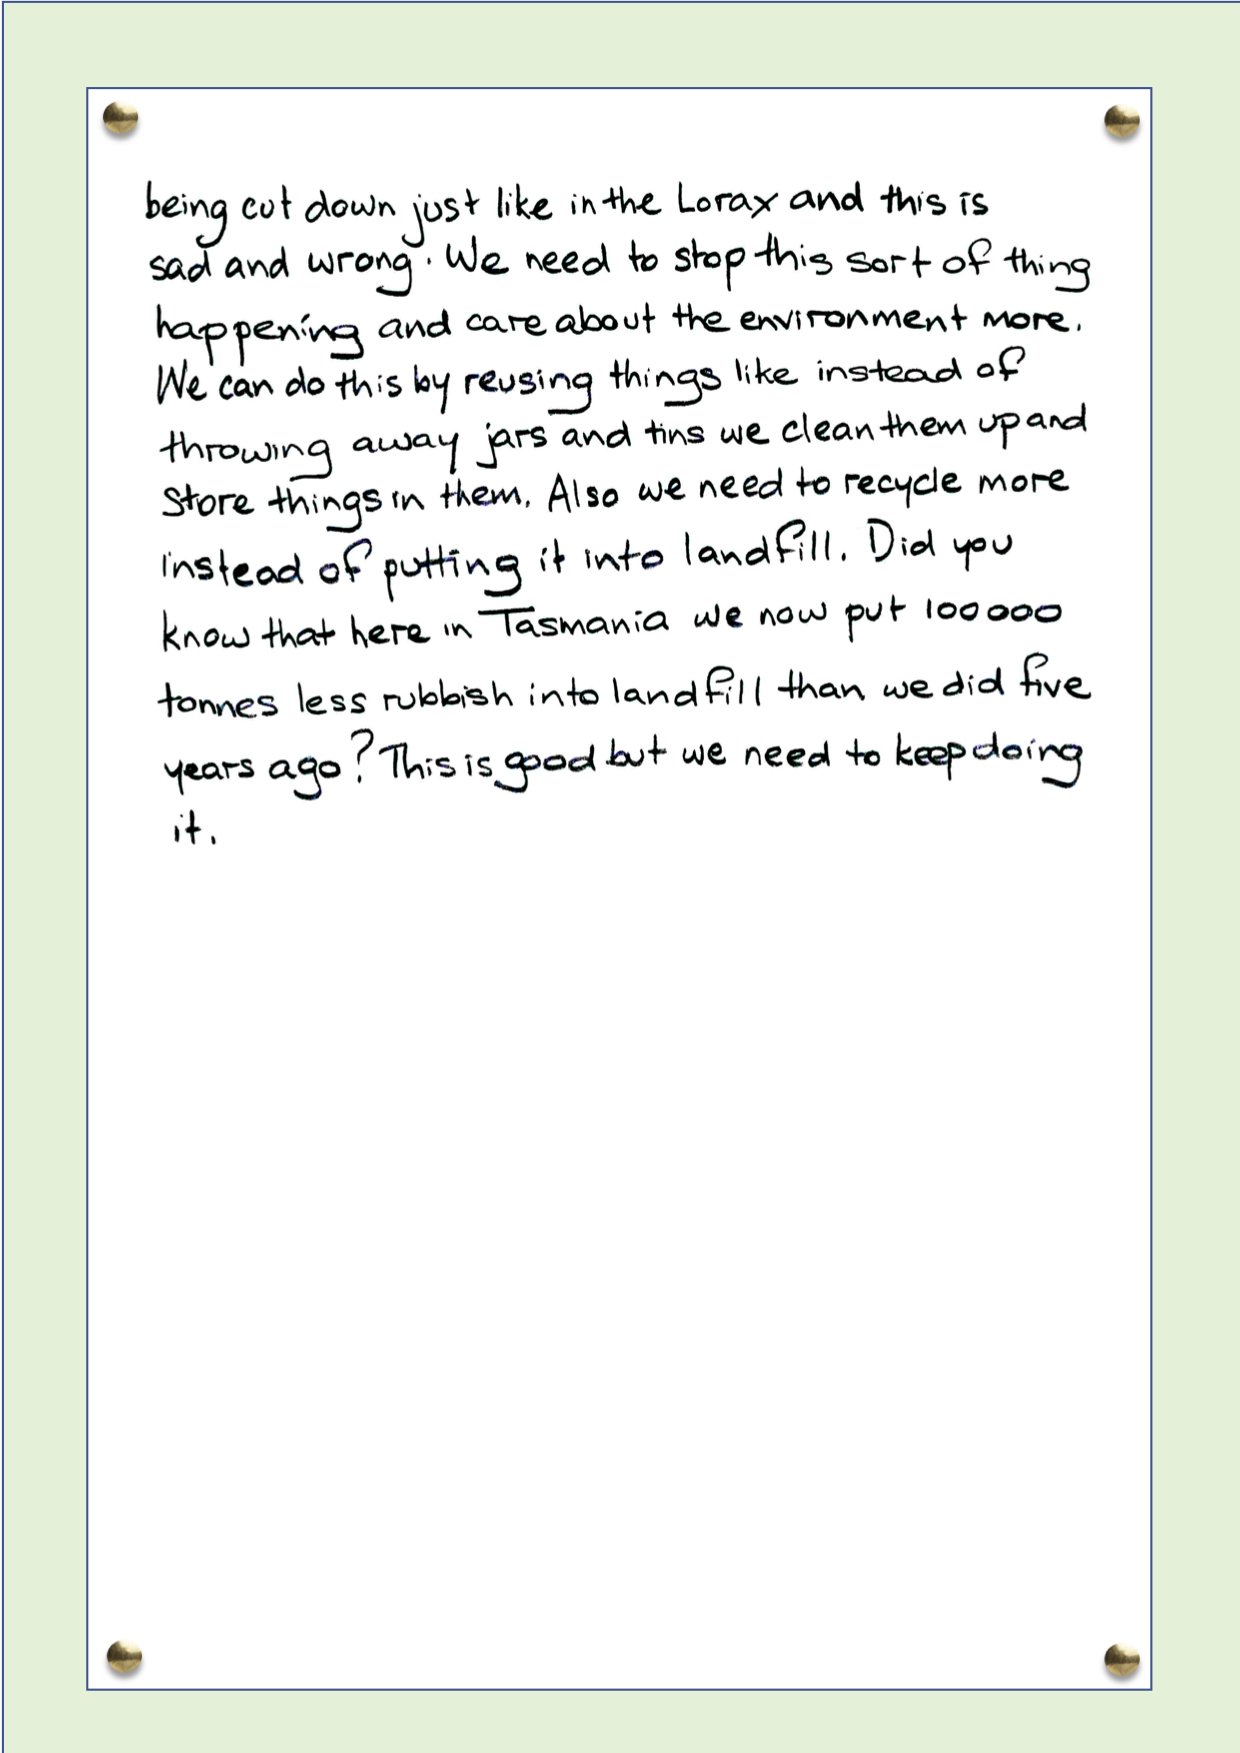 being cut down just like in the Lorax and this is
sad and wrong. We need to stop this sort of thing
happening and care about the environment more.
We can do this by reusing things like instead of
throwing away jars and tins we clean them up and
Store things in them. Also we need to recycle more
instead of putting it into landfill. Did you
know that here in Tasmania we now put 100000
tonnes less rubbish into landfill than we did five
years ago? This is good but we need to keep doing
it.